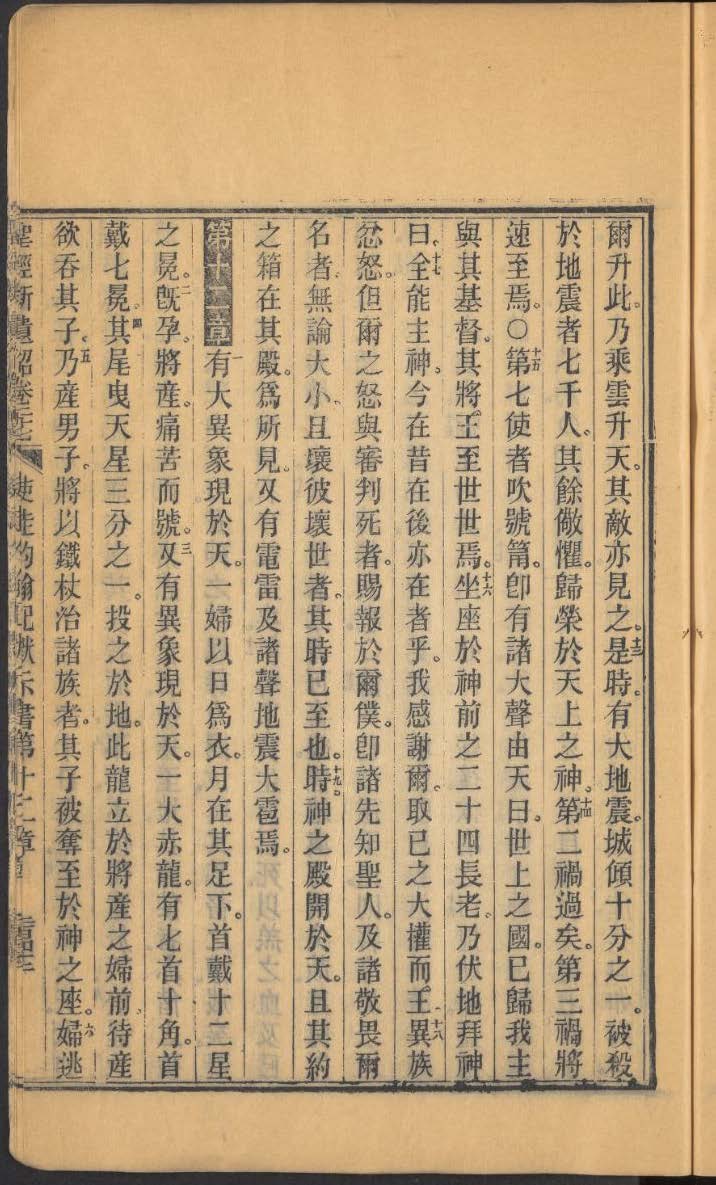 爾升此。乃乘雲升天。其敵亦見之。十三是時。有大地震。城傾十分之一。被殺
於地震者七千人。其餘儆懼。歸榮於天上之神。十四第二禍過矣。第三禍將
速至焉。○十五第七使者吹號筩。卽有諸大聲由天曰。世上之國。已歸我主
與其基督。其將王至世世焉。十六坐座於神前之二十四長老。乃伏地拜神
曰。十七全能主神。今在昔在後亦在者乎。我感謝爾。取已之大權而王。十八異族
忿怒。但爾之怒與審判死者。賜報於爾僕。卽諸先知聖人。及諸敬畏爾
名者。無論大小。且壞彼壞世者。其時已至也。十九時。神之殿開於天。且其約
之箱在其殿。爲所見。又有電雷及諸聲地震大雹焉。
第十二章 一有大異象現於天。一婦以日爲衣。月在其足下。首戴十二星
之冕。二旣孕。將產。痛苦而號。三又有異象現於天。一大赤龍。有七首十角。首
戴七冕。四其尾曳天星三分之一。投之於地。此龍立於將產之婦前。待產
欲吞其子。五乃產男子。將以鐵杖治諸族者。其子被奪至於神之座。六婦逃
聖經新遺詔卷 使徒約翰 默示書第十二章